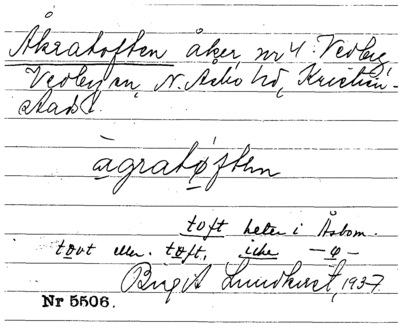 Åkratoften åker, nr 4. Vedby,
Vedby sn, N. Åsbo hd, Kristian-
stads l.
àgratǿften
toft heter i Åsbom.
tovt eller toft, icke – ø –
Birgit Lundkvist, 1937.
Nr 5506.